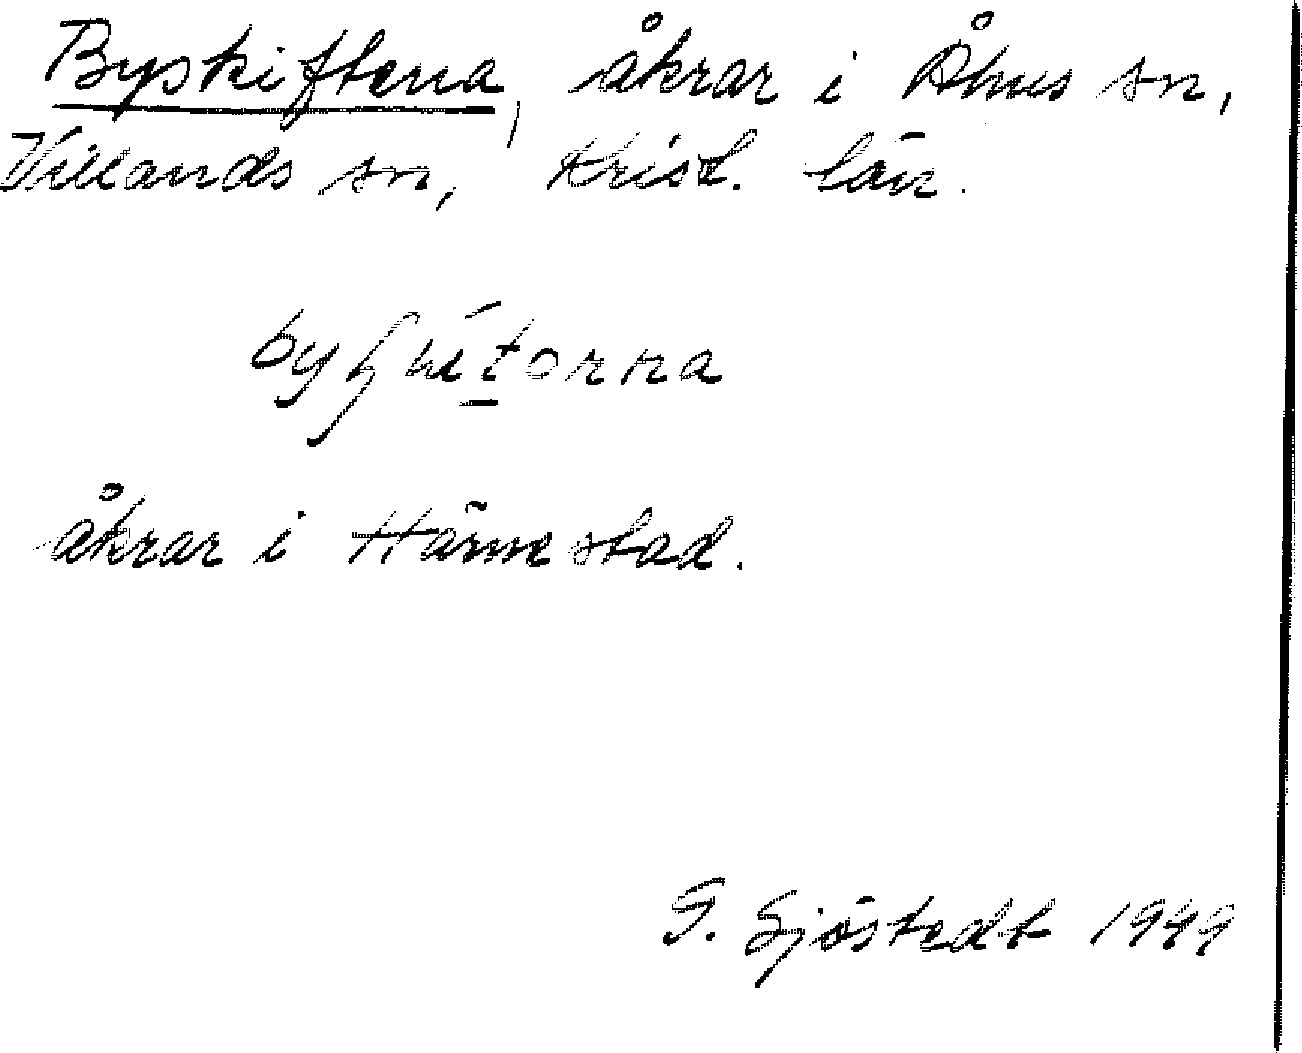 Byskiftena, åkrar i Åhus sn,
Villands sn, Krist. län.
åkrar i Härnestad.
G. Sjöstedt 1949